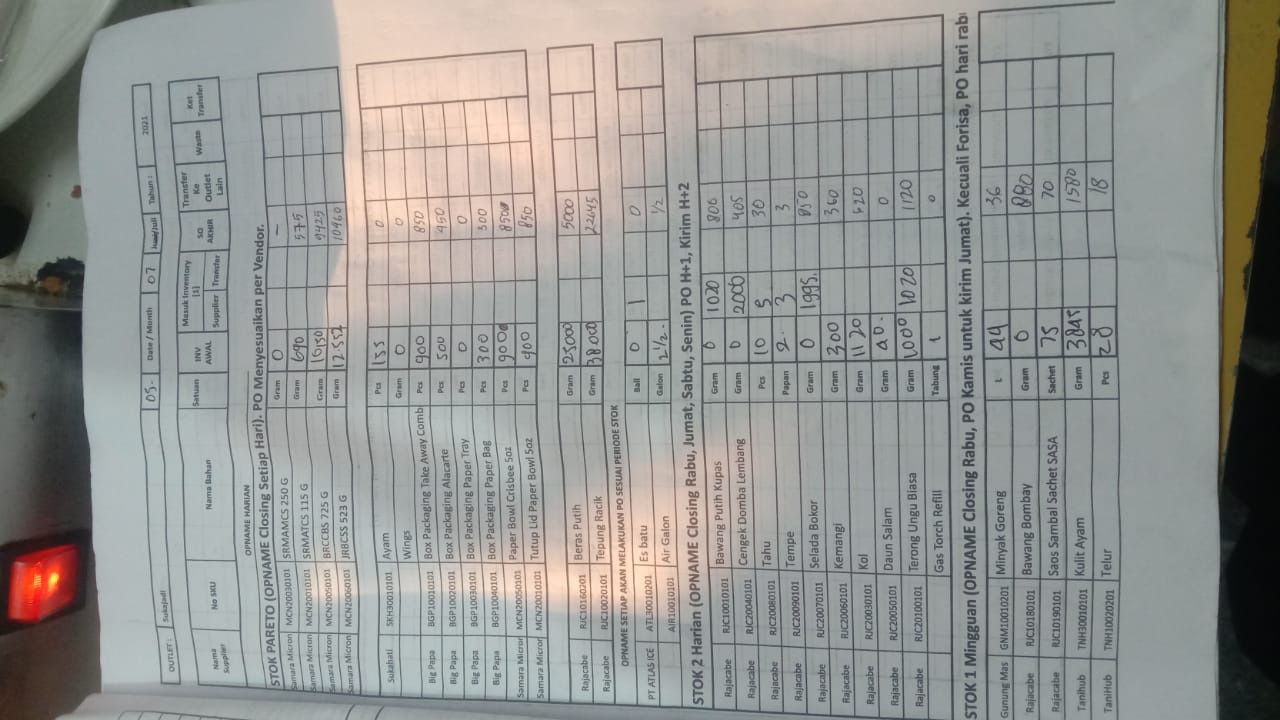 OUTLET : Sukajadi 05- Date / Month 07 Tahun : 2021
OPNAME HARIAN
Nama Supplier No SKU Nama Bahan Satuan INV AWAL Masuk Inventory (1) Supplier Transfer SO AKHIR Transfer Ke Outlet Lain Waste Ket Transfer
STOK PARETO (OPNAME Closing Setiap Hari). PO Menyesuaikan per Vendor.
Samara Micron MCN20030101 SRMAMCS 250 G Gram 0 -
Samara Micron MCN20010101 SRMATCS 115 G Gram 690 575
Samara Micron MCN20050101 BRCCBS 725 G Gram 10150 9425
Samara Micron MCN20060101 JRBCSS 523 G Gram 12.552 10460
Sukahati SKH30010101 Ayam Pcs 155 0
Wings Gram 0 0
Big Papa BGP10010101 Box Packaging Take Away Comb Pcs 900 850
Big Papa BGP10020101 Box Packaging Alacarte Pcs 500 450
Big Papa BGP10030101 Box Packaging Paper Tray Pcs 0 0
Big Papa BGP10040101 Box Packaging Paper Bag Pcs 300 300
Samara Micron MCN20050101 Paper Bowl Crisbee 5oz Pcs 900 850
Samara Micron MCN20010101 Tutup Lid Paper Bowl 5oz Pcs 900 850
Rajacabe RJC10160201 Beras Putih Gram 25000 5000
Rajacabe RJC10020101 Tepung Racik Gram 38000 22645
OPNAME SETIAP AKAN MELAKUKAN PO SESUAI PERIODE STOK
PT ATLAS ICE ATL30010201 Es batu Ball 0 1 0
AIR10010101 Air Galon Galon 2 1/2. 1/2
STOK 2 Harian (OPNAME Closing Rabu, Jumat, Sabtu, Senin) PO H+1, Kirim H+2
Rajacabe RJC10010101 Bawang Putih Kupas Gram 0 1020 806
Rajacabe RJC20040101 Cengek Domba Lembang Gram 0 2000 405
Rajacabe RJC20080101 Tahu Pcs 10 5 30
Rajacabe RJC20090101 Tempe Papan 2. 3 3
Rajacabe RJC20070101 Selada Bokor Gram 0 1995. 850
Rajacabe RJC20060101 Kemangi Gram 300 360
Rajacabe RJC20030101 Kol Gram 1120 620
Rajacabe RJC20050101 Daun Salam Gram 0
Rajacabe RJC20100101 Terong Ungu Biasa Gram 1000 1020 1120
Gas Torch Refill Tabung 1 0
STOK 1 Mingguan (OPNAME Closing Rabu, PO Kamis untuk kirim Jumat). Kecuali Forisa, PO hari rab
Gunung Mas GNM10010201 Minyak Goreng L 44 36
Rajacabe RJC10180101 Bawang Bombay Gram 0
Rajacabe RJC10190101 Saos Sambal Sachet SASA Sachet 75 70
Tanihub TNH30010101 Kulit Ayam Gram 3845 1580
TaniHub TNH10020201 Telur Pcs 28 18